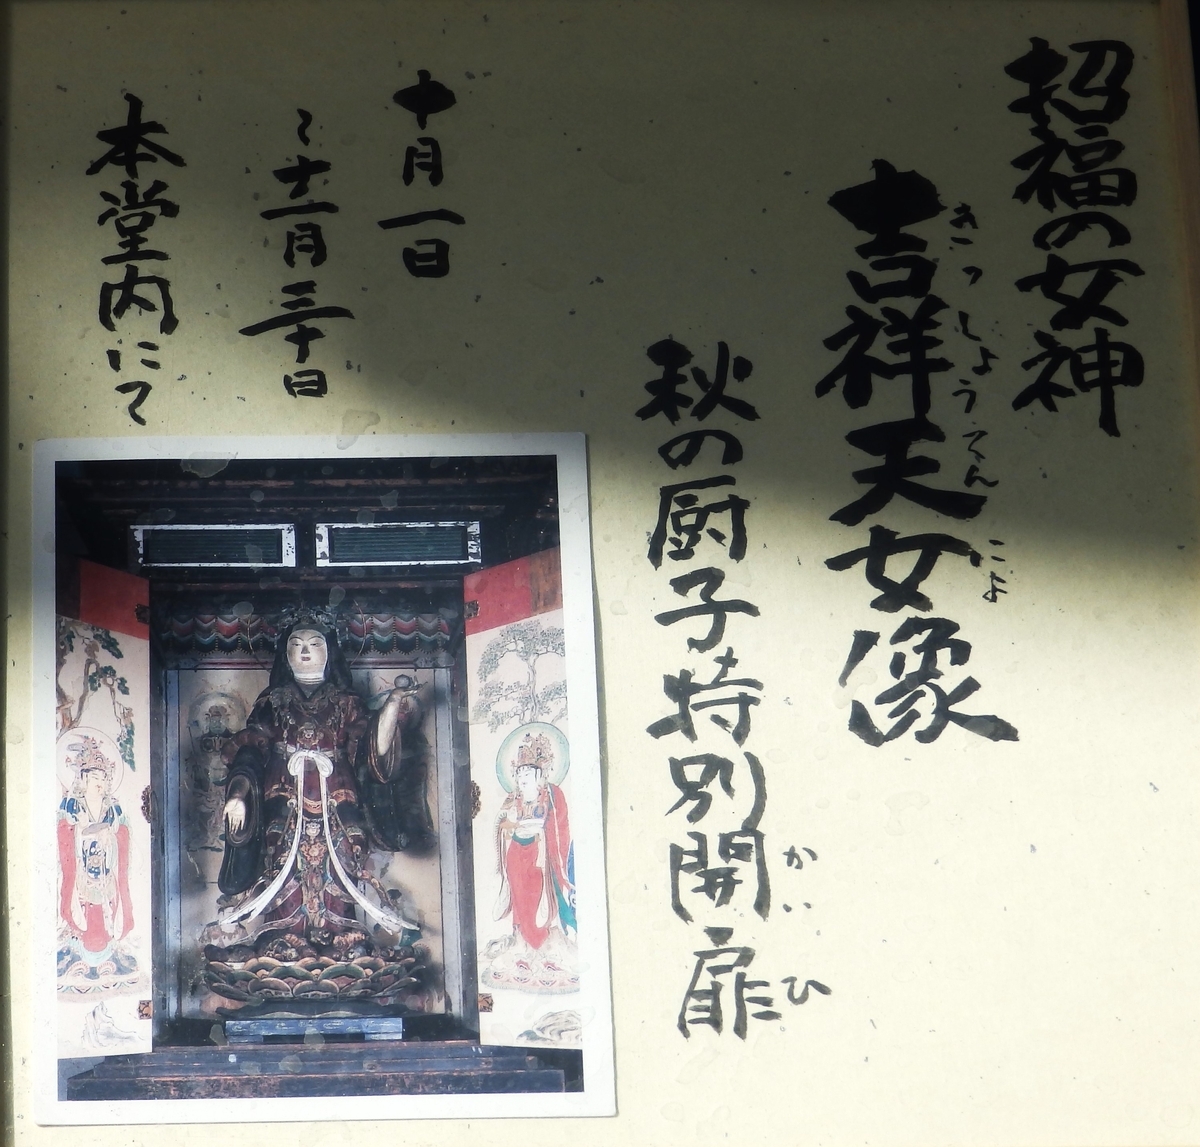 招福の女神
吉祥天女像
きっしょうてんにょ
秋の厨子特別開扉
かいひ
十月一日
〜十一月三十日
本堂内にて